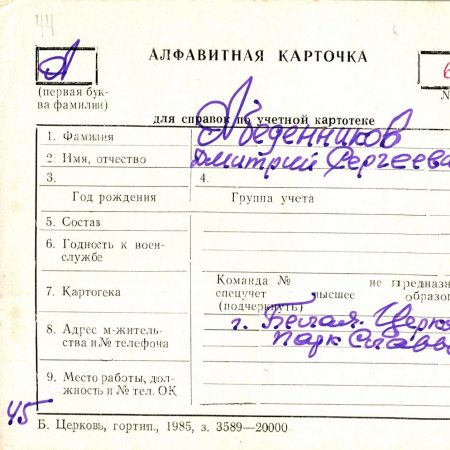 44
А
АЛФАВИТНАЯ КАРТОЧКА
6
(первая бук-
ва фамилии)
№
для справок по учетной картотеке
1. Фамилия
2 Имя, отчество Дмитрий Сергееви
3. 4.
Год рождения Группа учета
5. Состав
6. Годность к воен-
службе
7. Картотека
Команда № не предназн
спецучет высшее образо
(подчеркнуть)
8. Адрес м-житель-
ства и № телефона
г. Белая Церко
парк Славы
9. Место работы, дол-
жность и № тел. ОК
45
Б. Церковь, гортип., 1985, з. 3589—20000